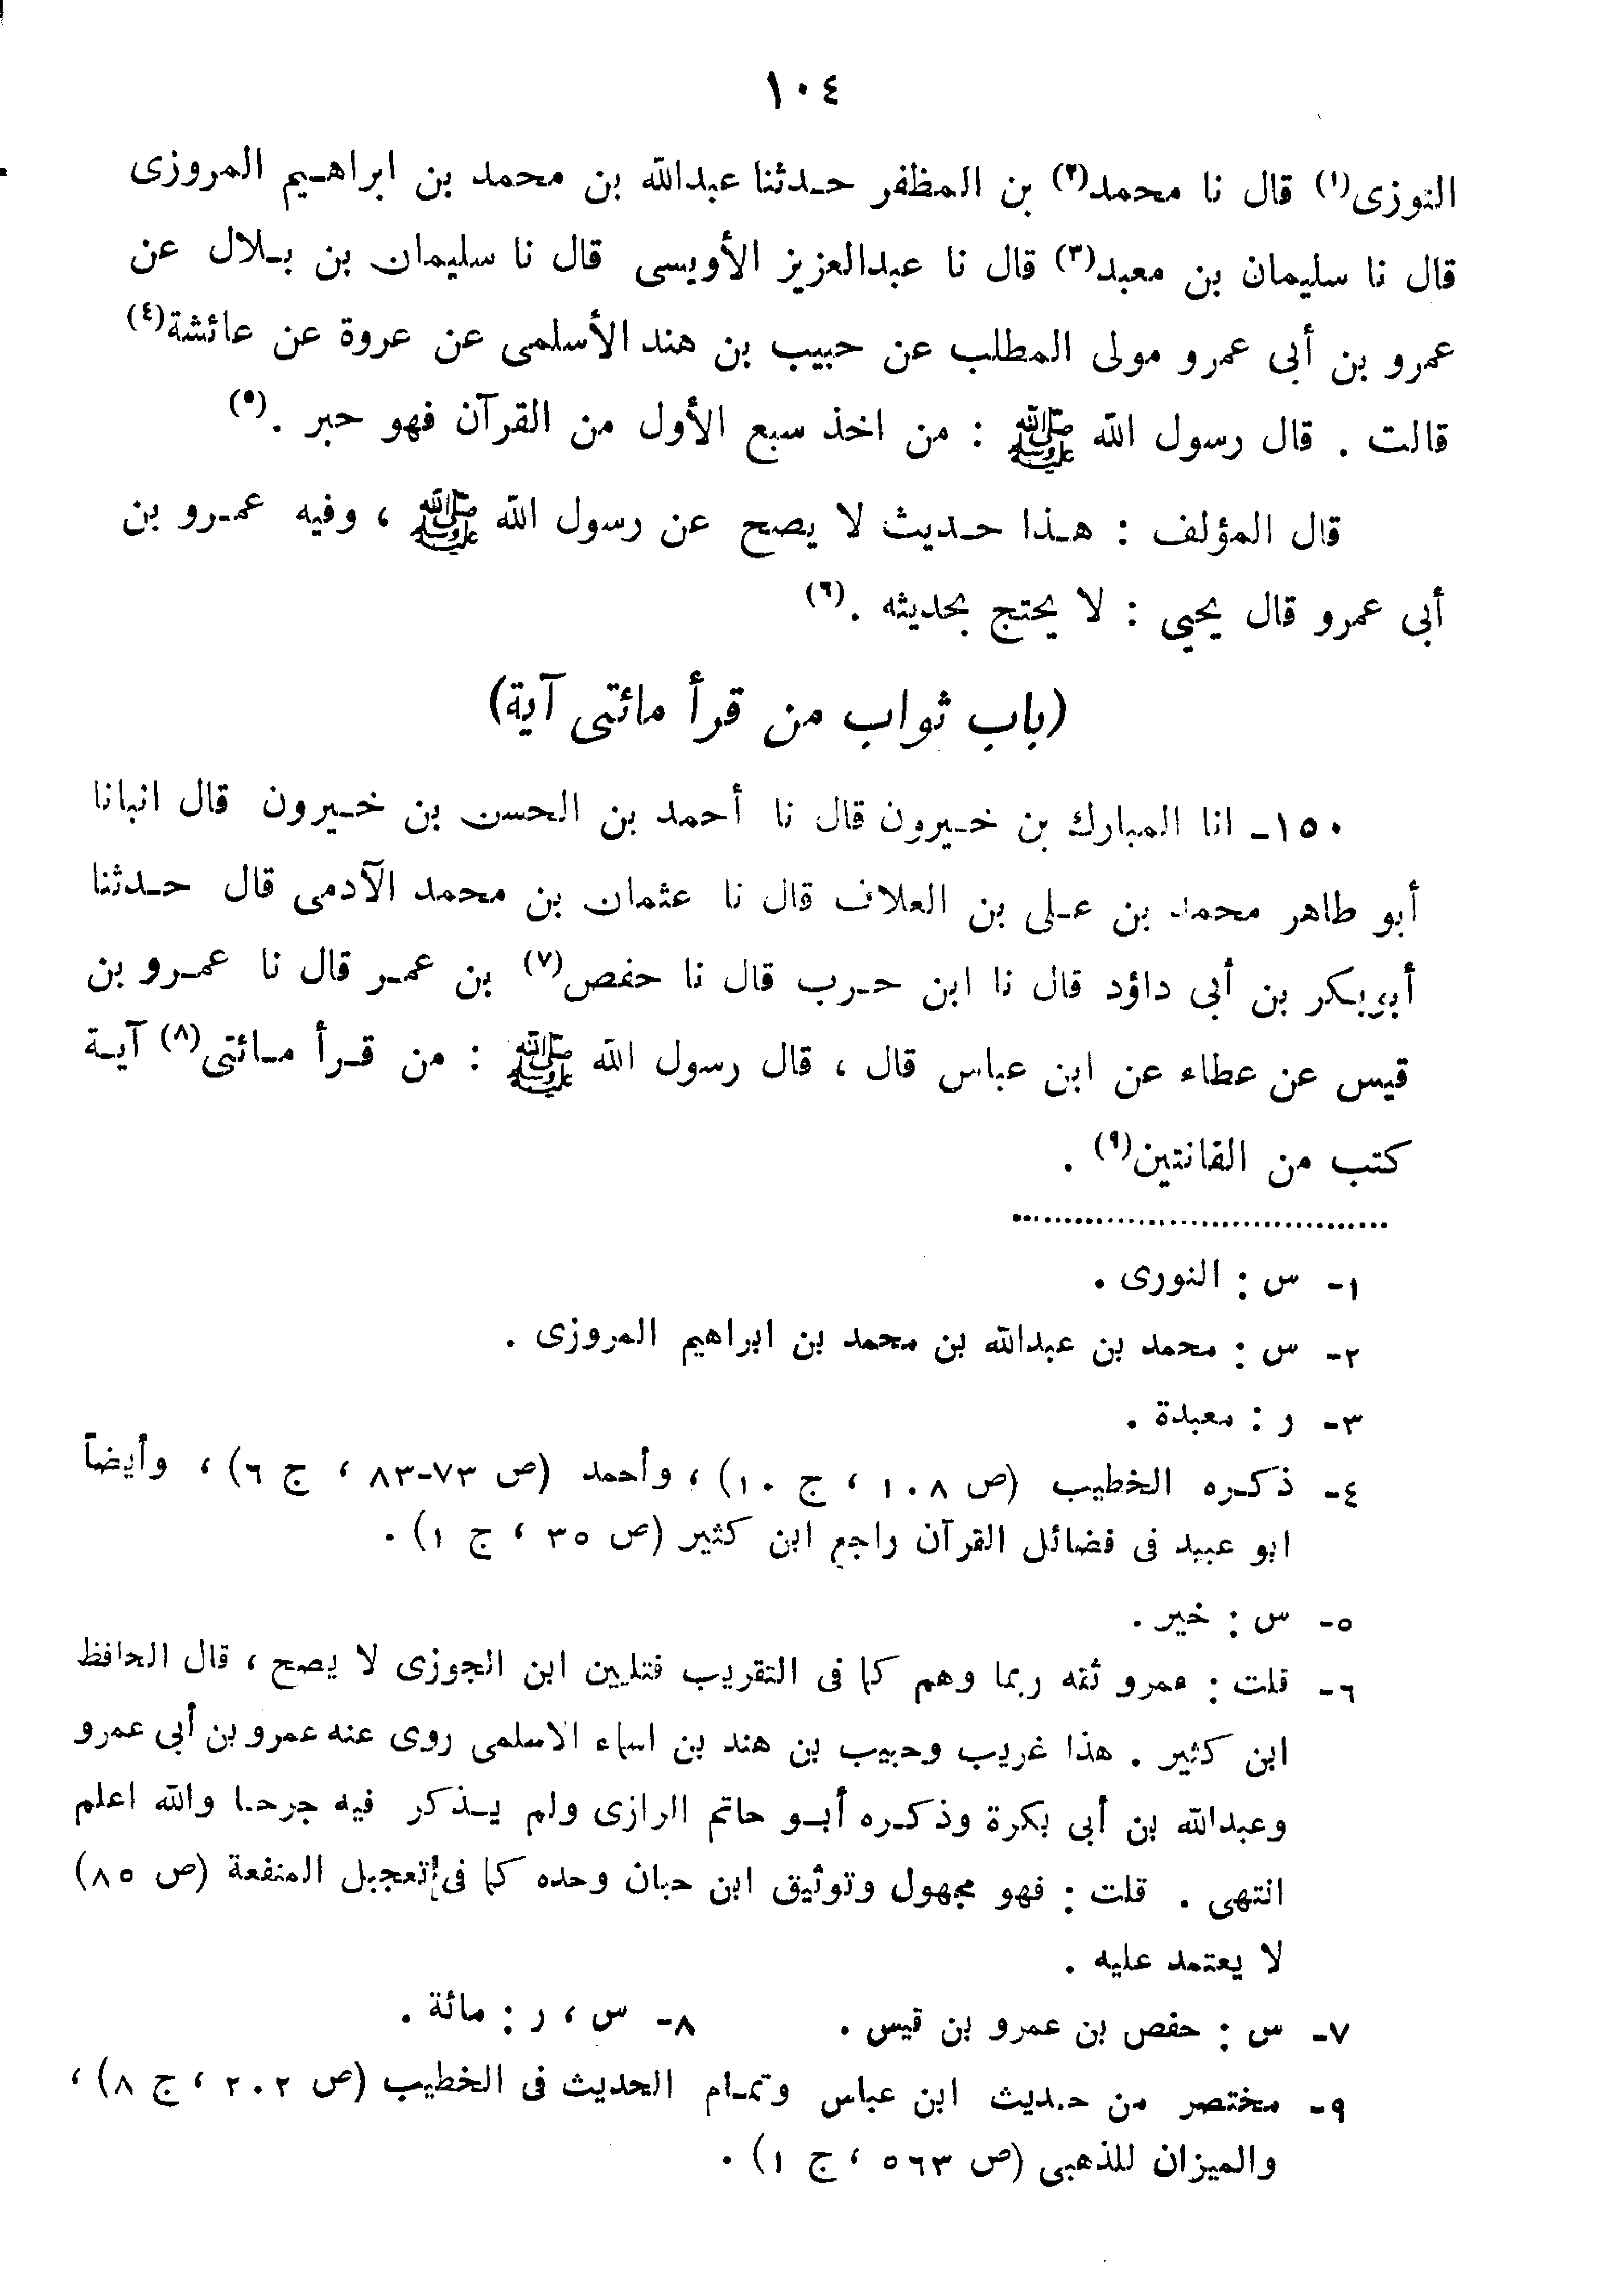 ١٠٤
التوزى(١) قال نا محمد(٢) بن المظفر حدثنا عبدالله بن محمد بن ابراهيم المروزى
قال نا سليمان بن معبد(٣) قال نا عبدالعزيز الأويسى قال نا سليمان بن بلال عن
عمرو بن أبى عمرو مولى المطلب عن حبيب بن هند الأسلمى عن عروة عن عائشة(٤)
قالت . قال رسول الله ﷺ : من اخذ سبع الأول من القرآن فهو حبر .(٥)
قال المؤلف : هذا حديث لا يصح عن رسول الله ﷺ ، وفيه عمرو بن
أبى عمرو قال يحيى : لا يحتج بحديثه .(٦)
(باب ثواب من قرأ مائتى آية)
١٥٠- انا المبارك بن خيرون قال نا أحمد بن الحسن بن خيرون قال انبانا
أبو طاهر محمد بن على بن العلاف قال نا عثمان بن محمد الآدمى قال حدثنا
أبوبكر بن أبى داؤد قال نا ابن حرب قال نا حفص(٧) بن عمر قال نا عمرو بن
قيس عن عطاء عن ابن عباس قال ، قال رسول الله ﷺ : من قرأ مائتى(٨) آية
كتب من القانتين(٩) .
١- س : النورى .
٢- س : محمد بن عبدالله بن محمد بن ابراهيم المروزى .
٣- ر : معبدة .
٤- ذكره الخطيب (ص ١٠٨ ، ج ١٠) ، وأحمد (ص ٧٣-٨٣ ، ج ٦) ، وأيضاً
ابو عبيد فى فضائل القرآن راجع ابن كثير (ص ٣٥ ، ج ١) .
٥- س : خير .
٦- قلت : عمرو ثقه ربما وهم كما فى التقريب فتليين ابن الجوزى لا يصح ، قال الحافظ
ابن كثير . هذا غريب وحبيب بن هند بن اسماء الاسلمى روى عنه عمرو بن أبى عمرو
وعبدالله بن أبى بكرة وذكره أبو حاتم الرازى ولم يذكر فيه جرحا والله اعلم
انتهى . قلت : فهو مجهول وتوثيق ابن حبان وحده كما فى تعجيل المنفعة (ص ٨٥)
لا يعتمد عليه .
٧- س : حفص بن عمرو بن قيس . ٨- س ، ر : مائة .
٩- مختصر من حديث ابن عباس وتمام الحديث فى الخطيب (ص ٢٠٢ ، ج ٨) ،
والميزان للذهبى (ص ٥٦٣ ، ج ١) .